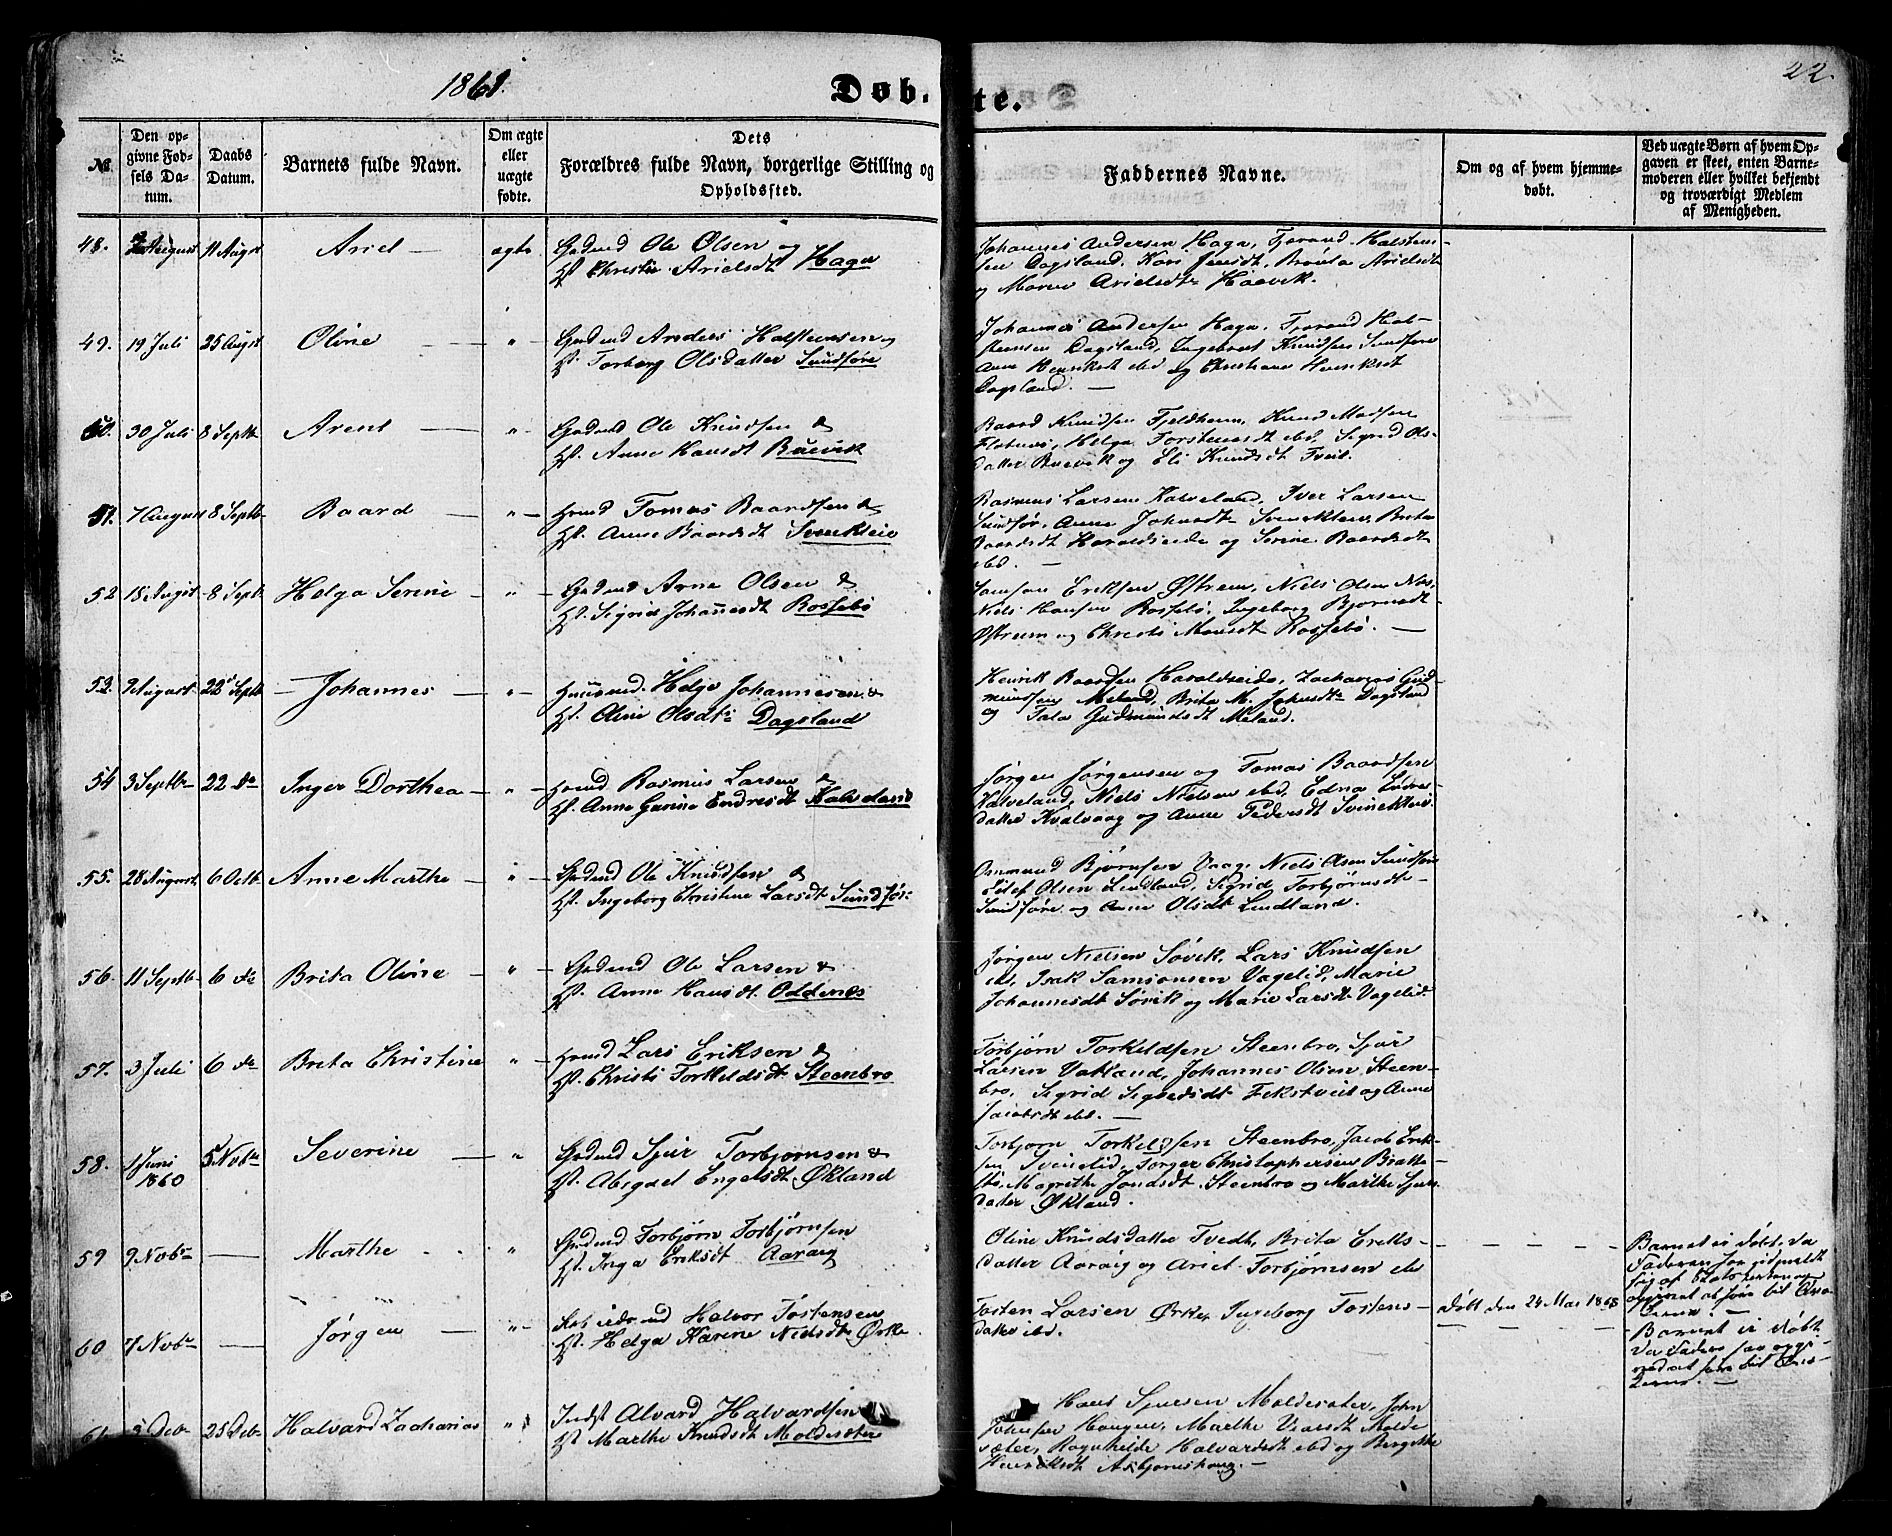 1861.
Døb.
te.
22.
№
Den op-
givne Fød-
sels Da-
tum.
Daabs
Datum.
Barnets fulde Navn.
Om ægte
eller
uægte
fødte.
Dets
Forældres fulde Navn, borgerlige Stilling og
Opholdssted.
Faddernes Navne.
Om og af hvem hjemme-
døbt.
Ved uægte Børn af hvem Op-
gaven er skeet, enten Barne-
moderen eller hvilket bekjendt
og troværdigt Medlem
af Menigheden.
48. August 11 Augst Ariel — ægte Gbdmd Ole Olsen og
H. Christie Arielsdt Haga
Johannes Andersen Haga, Tjerand Halsten-
sen Dagsland, Kari Jensdt, Brita Arielsdt
og Maren Arielsdt Høevik.
49. 19 Juli 25 Augst Oline — " — Gbdmd Anders Halstensen og
H. Torborg Olsdatter Sundføre
Johannes Andersen Haga, Tjerand Hal-
steensen Dagsland, Ingebret Knudsen Sundføre
Anne Henriksdt ibd og Christiane Henriksdt
Dagsland. —
50. 30 Juli 8 Septb Arent — " — Gbdmd Ole Knudsen &
H. Anne Hansdt Buevik
Baard Knudsen Fjeldheim, Knud Madsen
Helga Torstensdt ibd, Sigrid Ols-
datter Buevik og Eli Knudsdt Tveit.
51. 7 August 8 Septb Baard — " — Hmd Tomas Baardsen &
H. Anne Baardsdt Svinekleie
Rasmus Larsen Kalveland, Iver Larsen
Sundfør, Anne Johnsdt Svinekleiv, Brita
Baardsdt Haraldseide og Serine Baardsdt
ibd. —
52 18 Augst 8 Septb Helga Serine — " — Gbdmd Arne Olsen &
H. Sigrid Johannesdt Rossebø
Samson Eriksen Østrem, Niels Olsen Næs,
Niels Hansen Rossebø, Ingeborg Bjørnsdt
Østrem og Christi Monsdt Rossebø. —
53. August 22 Septb — Johannes — " — Huusmd. Helge Johannesen &
H. Oline Olsdt Dagsland
Henrik Baardsen Haraldseide, Zacharias Gud-
mundsen Meland, Brita M. Johnsdt Dagsland
og Tala Gudmundsdt Meland.
54 3 Septbr 22 do Inger Dorthea — " — Hmd Rasmus Larsen &
H. Anne Gurine Endresdt Kalveland
Jørgen Jørgensen og Tomas Baardsen
Kalveland, Niels Nielsen ibd, Edna Endres-
datter Kvalvaag og Anne Pedersdt Svinekleiv.
55. 28 August 6 Octb Anne Marthe — " — Gbdmd Ole Knudsen &
H. Ingeborg Christine Larsdt Sundfør.
Ommund Bjørnsen Vaage, Niels Olsen Sundføre
Olsen Lindland, Sigrid Torbjørnsdt
Sundføre og Anne Olsdt Lindland.
56. 11 Septb 6 do Brita Oline — " — Gbdmd Ole Larsen &
H. Anne Hansdt Oddenes
Jørgen Nielsen Søvik, Lars Knudsen
ibd, Isak Samsonsen Vagelid, Marie
Johannesdt Søvik og Marie Larsdt Vagelid.
57. 3 Juli 6 do Brita Christine " — Hmd Lars Eriksen &
H. Christi Torkeldsdt Steenbro
Torbjørn Torkeldsen Steenbro, Sjur
Larsen Vatland, Johannes Olsen Steen-
bro, Sigrid Eekstveit og Anne
Jacobsdt ibd. —
58. 1 Juni
1860 5 Nobr Severine — " Gbdmd Sjur Torbjørnsen &
H. Abigael Engelsdt Økland
Torbjørn Torkeldsen Steenbro, Jacob Erik-
sen Svinelid, Torger Christophersen Bratte-
stø, Magrethe Jonsdt Steenbro og Marthe Sjurs-
datter Økland.
59 9 Nobr — Marthe " Gbdmd Torbjørn Torbjørnsen
H. Inga Eriksdt Aaraig
Oline Knudsdatter Tvedt, Brita Eriks-
datter Aaraig og Ariel Torbjørnsen ibd
Barnet ei døbt, da
Faderen har udmeldt
sig af Statskirken og
opgivet at høre til Qvæ-
kerne. —
60 7 Nobr — Jørgen — " — Halvor Tostensen
H. Helga Karine Nielsdt Ørke
Tosten Larsen Ørke, Ingeborg Tostens-
datter ibd.
døbt den 24 Mai 1868
Barnet ei døbt
da Faderen har opgi-
ved at høre til Qvæ-
kerne. —
61 5 Deb 25 Deb Halvard Zacharias " Indst Alvard Halvardsen
H. Marthe Knudsdt Moldesæter
Hans Sjursen Moldesæter, John
Johnsen Haugen, Marthe Molde-
sæter, Ragnhilde Halvardsdt ibd og Bergitte
Henriksdt Asbjørnshaug. —